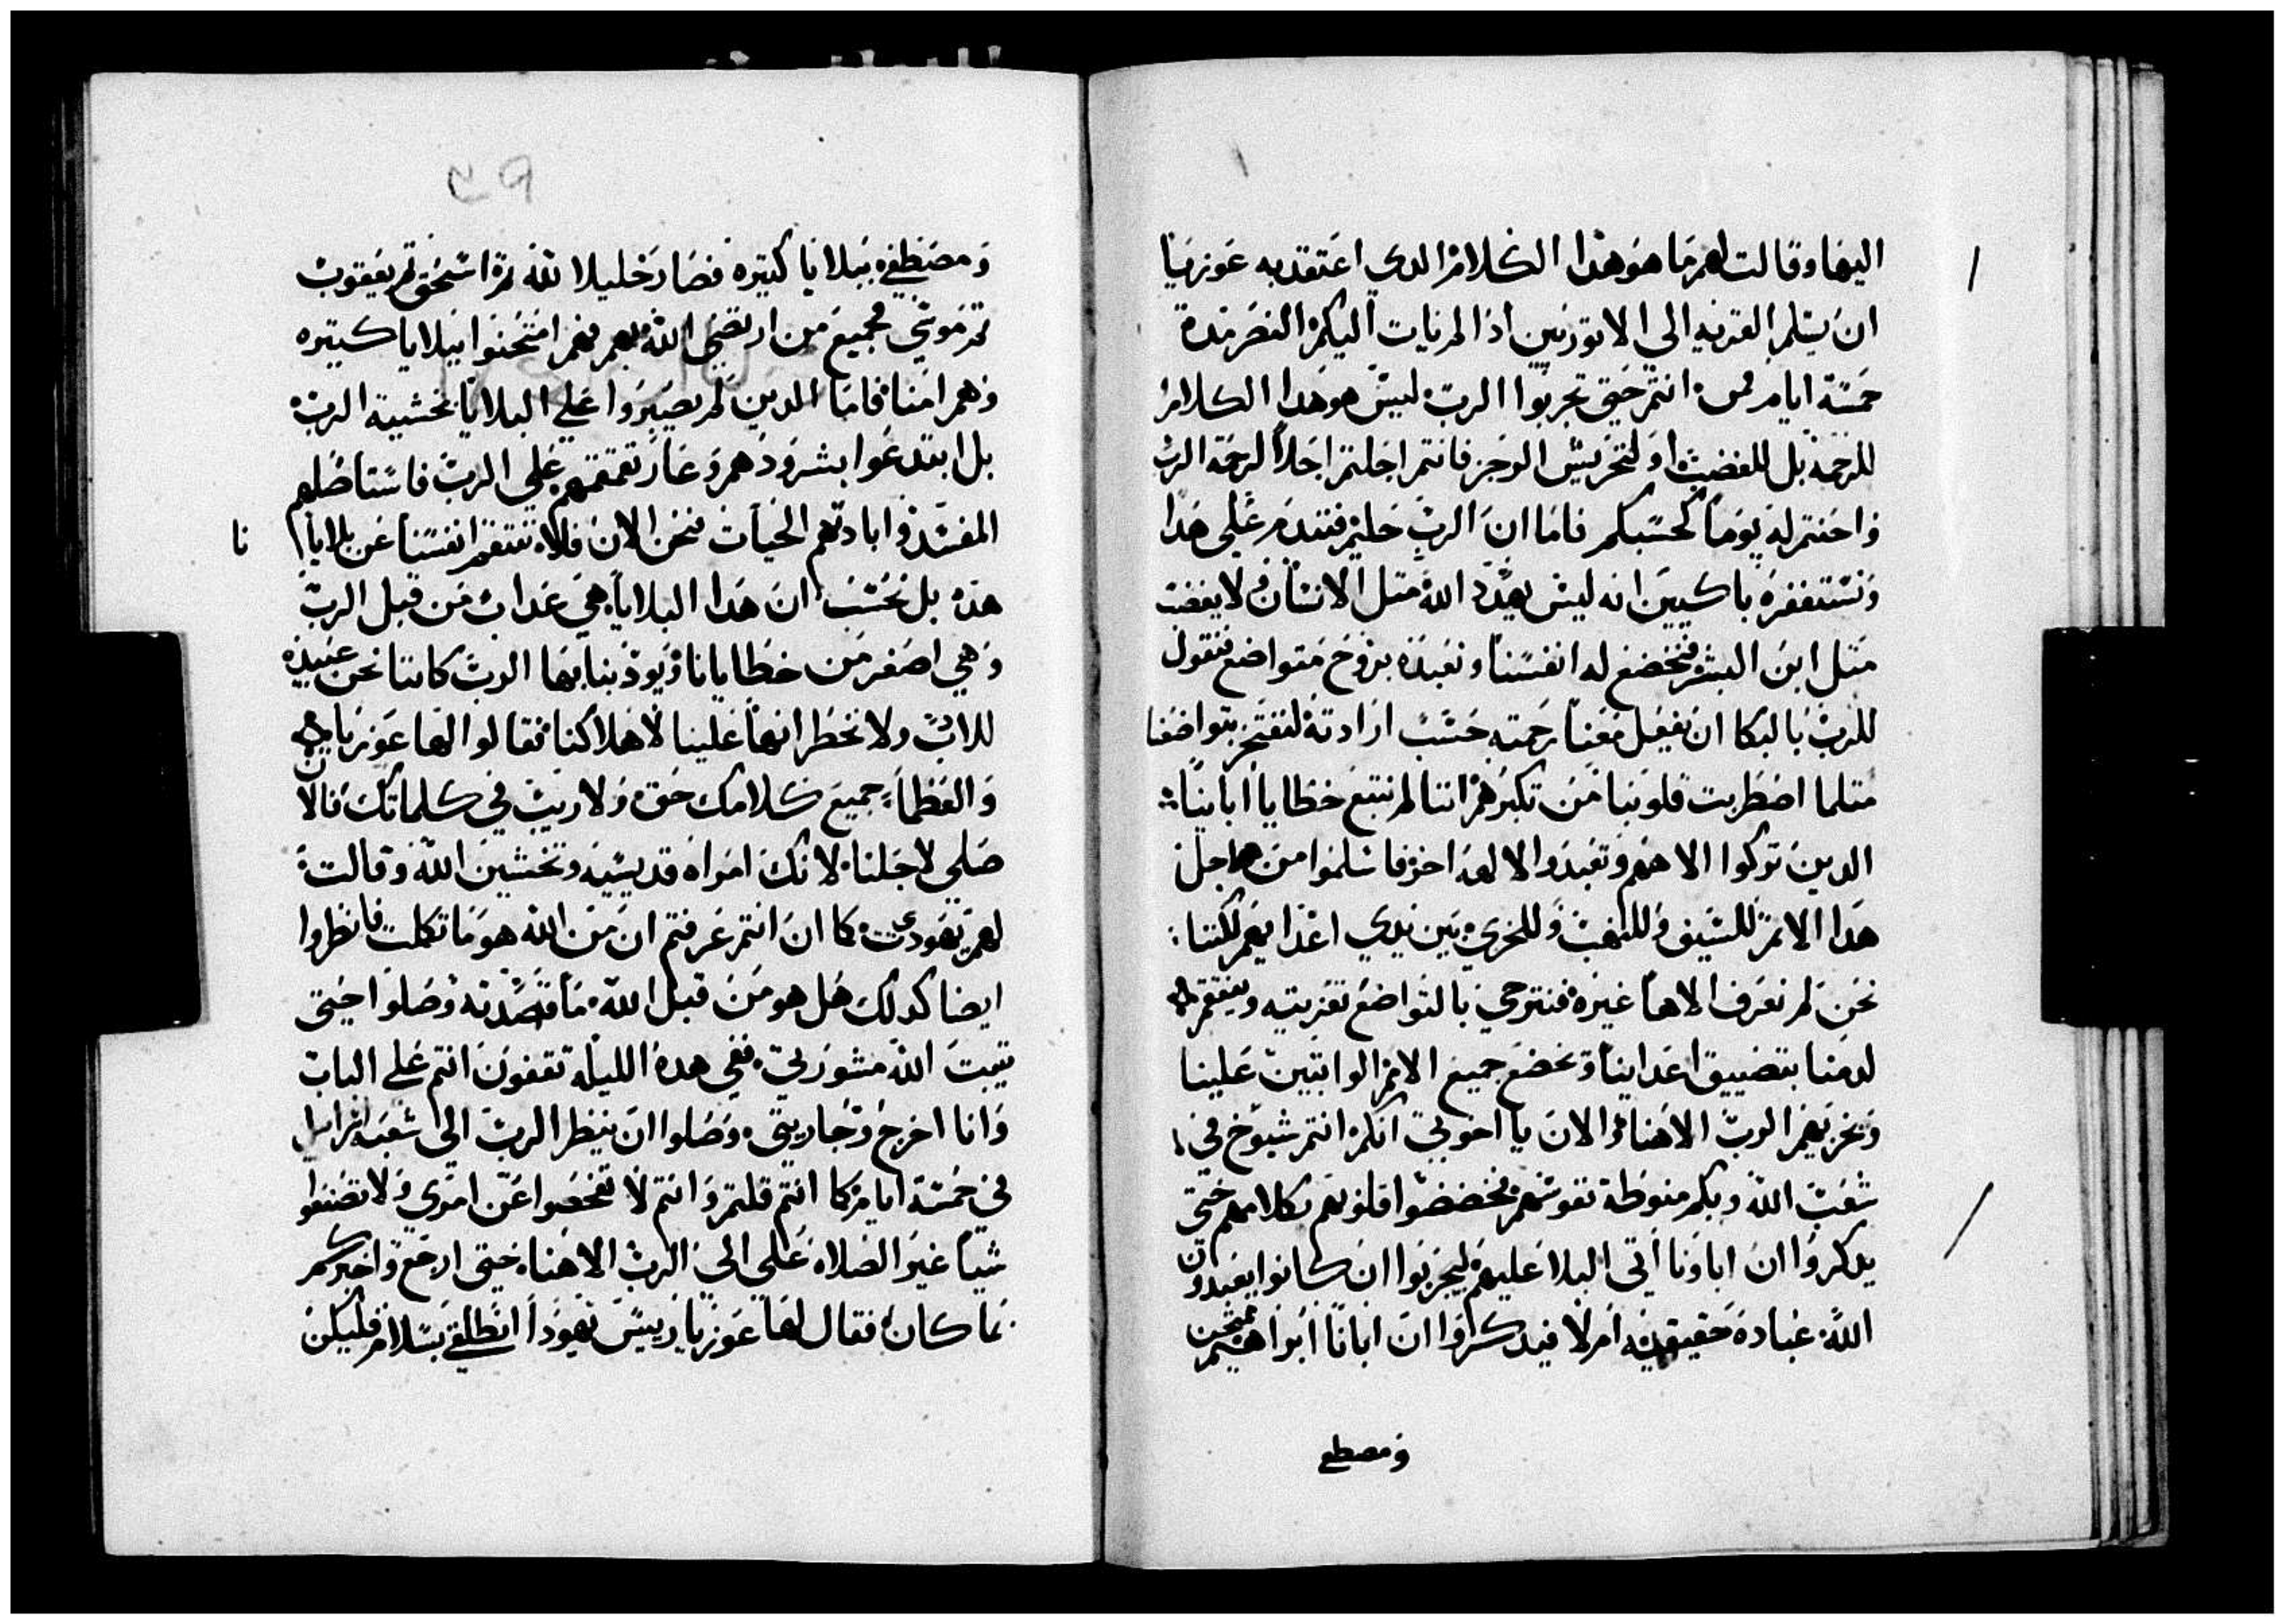 اليها وقالت لهم ما هو هذا الكلام الدي اعتقد به عوزيا
ان يسلم القريه الي الاتوريين اذا لم يات اليكم النصر مدة
خمسة ايام انتم حتي تجربوا الرب ليس هو هدا الكلام
للرحمة بل للغضب او لتحريش الرجز فانتم اجلتم اجلا لرحمة الرب
واحنتم له يوما كحسبكم فاما ان الرب حليم فنندم علي هدا
ونستغفره باكيين انه ليس يهدد الله متل الانسان ولا يغضب
متل ابن البشر فنخضع له انفسنا ونعبده بروح متواضع فنقول
للرب بالبكا ان يفعل معنا رحمته حسب ارادته لنفتخر بتواضعنا
متلما اضطربت قلوبنا من تكبرهم اننا لم نتبع خطايا اباينا
الدين تركوا الاههم وتعبدوا الالهه اخر فاسلموا من اجل
هدا الاتم للسيف وللنهب وللخزي بين يدي اعدايهم لكننا
نحن لم نعرف الاها غيره فنترجي بالتواضع تعزيته وينتقم
لدمنا بتضييق اعداينا وتخضع جميع الامم الواتبين علينا
ويخزيهم الرب الاهنا والان يا اخوتي انكم انتم شيوخ في
شعب الله وبكم منوطة نفوسهم فخفضوا قلوبهم بكلامهم حتي
يدكروا ان اباونا اتي البلا عليهم ليجربوا ان كانوا يعبدون
الله عبادة حقيقيه ام لا فيدكروا ان ابانا ابراهيم ممتحن
ومصطفي
٣٩
ومصطفي ببلايا كتيره فصار خليلا لله تم اسحق تم يعقوب
تم موسي فجميع من ارتضي الله بهم فهم امتحنوا ببلايا كتيره
وهم امنا فاما الدين لم يصبروا علي البلايا بخشية الرب
بل ابتدعوا بشرودهم وعار تقمقمهم علي الرب فاستاصلهم
المفسد وابادتهم الحيات فنحن الان فلا ننتقم انفسنا عن بلايانا
هده بل نحسب ان هدا البلايا هي عداب من قبل الرب
وهي اصغر من خطايانا ويودبنا بها الرب كاننا نحن عبيده
للادب ولا نخطر انها علينا لاهلاكنا فقالوا لها عوزيا
والعظماء جميع كلامك حق ولا ريب في كلماتك فالان
صلي لاجلنا لانك امراه قديسيه وتخشين الله وقالت
لهم يهوديت كما ان انتم عرفتم ان من الله هو ما تكلمت فانظروا
ايضا كدلك هل هو من قبل الله ما قصدته وصلوا حتي
يتبت الله مشورتي ففي هده الليله تقفون انتم علي الباب
وانا اخرج وجاريتي وصلوا ان ينظر الرب الي شعبه اسراييل
في خمسة ايام كما انتم قلتم وانتم لا تفحصوا عن امري ولا تصنعوا
شيا غير الصلاه علي الي الرب الاهنا حتي ارجع واخبركم
بما كان فقال لها عوزيا رييس يهودا انطلقي بسلام فليكن